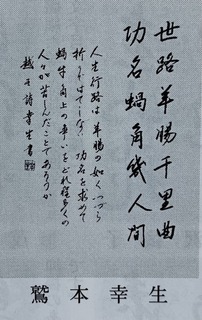 世路羊腸千里曲
功名蝸角幾人間
人生行路は羊腸の如くつづら
折りではてしない 功名を求めて
蝸牛角上の争いをどれ程多くの
人々が苦しんだことであろうか
鷲本幸生